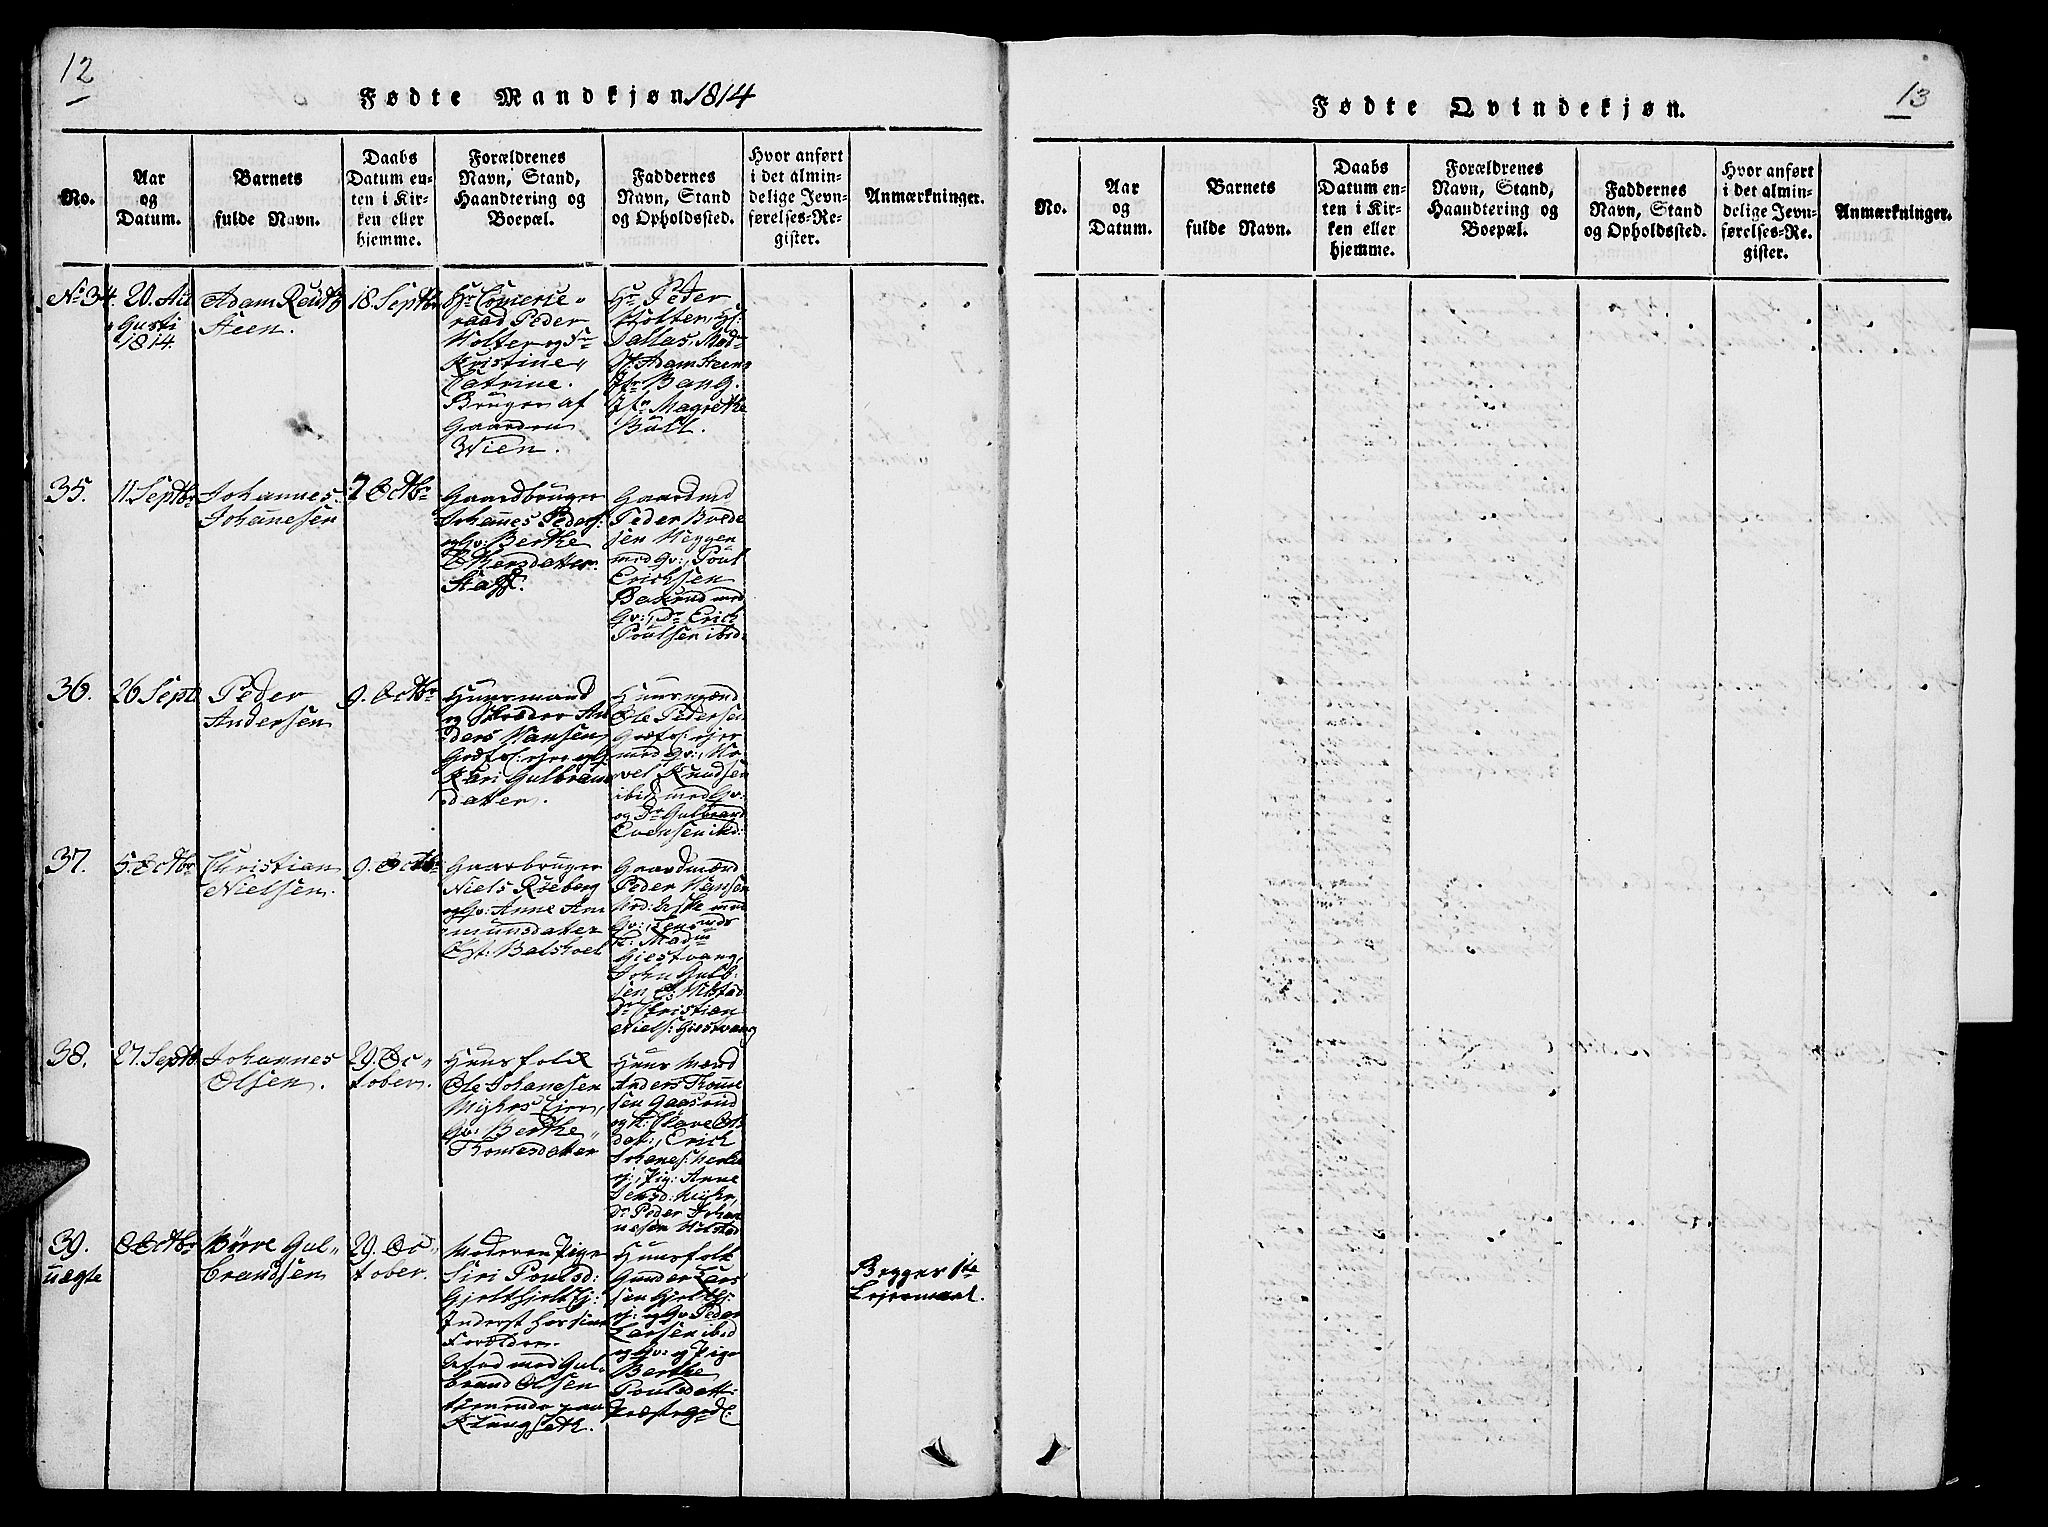 12
Fødte Mandkjøn 1814
No.
Aar
og
Datum.
Barnets
fulde Navn.
Daabs
Datum en-
ten i Kir-
ken eller
hjemme.
Forældrenes
Navn, Stand,
Haandtering og
Boepæl.
Faddernes
Navn, Stand
og Opholdssted.
Hvor anført
i det almin-
delige Jevn-
førelses-Re-
gister.
Anmærkninger.
No 34. 20. Au
gusti
1814.
Adam
Steen.
18 Septbr
Peder
Kristine
Catrine.
Bruger af
Gaarden
Wien.
Hr Peder
Holter,
Adam Steens
Jfr Bang.
Jfr Magrethe
Bull.
35.
11 Septbr
Johannes
Johanesen
2 Octbr
Gaardbruger
Johanes Peders:
Berthe
Staff.
Gaardmd
Peder
sen Heggen
med Qv:, Poul
Erichsen
Baserud med
Qv:, Dr Erich
Poulsen ibid:
36.
26 Sept
Peder
Andersen
9. Octbr
Huusmand
og Skræder An
ders Hansen,
Kari Gulbran
datter.
Huusmænd
Ole Pedersen
med Qv:,
Knudsen
ibid med Qv:
og Dr Gulbrand
Evensen ibid:
37.
5. Octbr
Christian
Nielsen.
9. Octbr
Gaarbruger
Niels Roeberg
Anne Am
munsdatter
Øst: Balshoel
Gaardmænd
Peder Hansen
med
Qv:,
Giestvang,
John Gulb:
sen
Dr Christian
Niels: Giestvang
38.
27. Septb.
Johannes
Olsen.
29. Oc-
tober.
Huusfolk
Ole Johanesen
Myhrs Eier,
Qv: Berthe
Tomesdatter
Huusmænd
Anders Tome
sen Gaasrud
dat:, Erich
Johanes:
Pig: Anne
Jensd: Myhr,
Dr Peder Johan
nesen
39.
uægte
Octbr
Börre Gul-
brandsen
29. Oc-
tober.
Moderen Pige
Siri Poulsd:
Inderst hos sine
Forældre.
Afad med Gul-
brand Olsen
tienende paa
Klungseth.
Huusfolk
Gunder Lars
sen
Qv: Peder
Larsen ibid
og Qv: og Pige
Berthe
Poulsdatt:
Præstegd:
Begges 1te
Leiermaal.
13
Fødte Qvindekjøn.
No.
Aar
og
Datum.
Barnets
fulde Navn.
Daabs
Datum en-
ten i Kir-
ken eller
hjemme.
Forældrenes
Navn, Stand,
Haandtering og
Boepæl.
Faddernes
Navn, Stand
og Opholdssted.
Hvor anført
i det almin-
delige Jevn-
førelses-Re-
gister.
Anmærkninger.